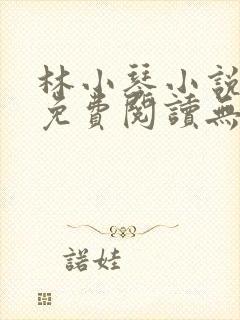 林小琴小說
免費閱讀無
諾娃